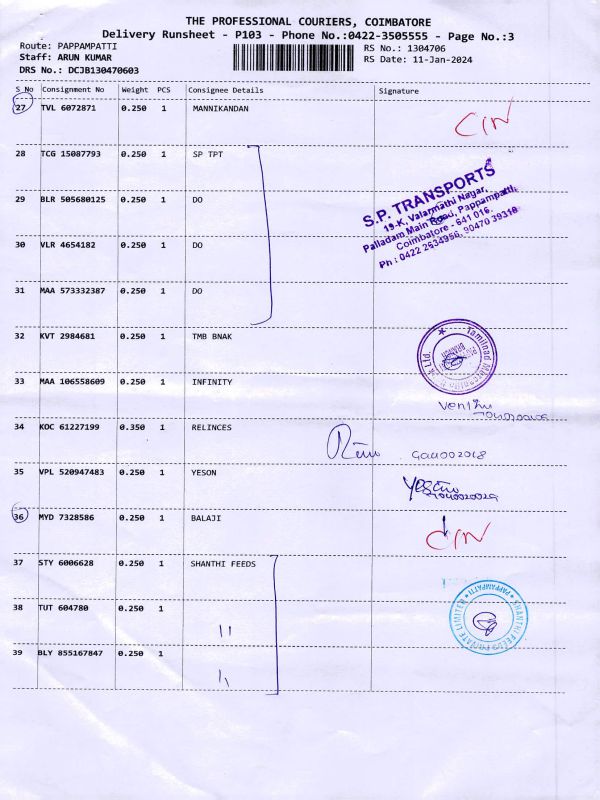 THE PROFESSIONAL COURIERS, COIMBATORE
Delivery Runsheet - P103 - Phone No.:0422-3505555 - Page No.:3
Route: PAPPAMPATTI RS No.: 1304706
Staff: ARUN KUMAR RS Date: 11-Jan-2024
DRS No.: DCJB130470603
S No Consignment No Weight PCS Consignee Details Signature
27 TVL 6072871 0.250 1 MANNIKANDAN
CIN
28 TCG 15087793 0.250 1 SP TPT
S.P. TRANSPORTS
19-K, Valarmathi Nagar,
Palladam Main Road, Pappampatti,
Coimbatore - 641 016.
Ph : 0422 2634956, 90470 39318
29 BLR 505680125 0.250 1 DO
30 VLR 4654182 0.250 1 DO
31 MAA 573332387 0.250 1 DO
32 KVT 2984681 0.250 1 TMB BNAK
Tamilnad Mercantile Ltd.
33 MAA 106558609 0.250 1 INFINITY
34 KOC 61227199 0.350 1 RELINCES
35 VPL 520947483 0.250 1 YESON
36 MYD 7328586 0.250 1 BALAJI
CIN
37 STY 6006628 0.250 1 SHANTHI FEEDS
SHANTHI FEEDS PRIVATE LIMITED
PAPPAMPATTI
38 TUT 604780 0.250 1
"
39 BLY 855167847 0.250 1
"